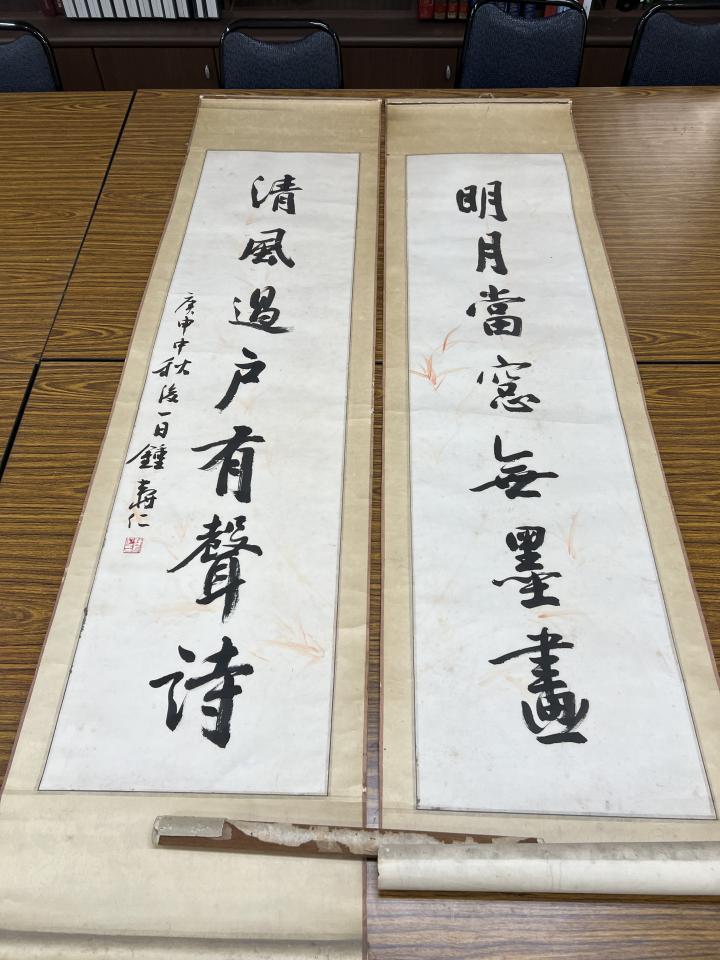 明月當窓無墨畫
清風過户有聲詩
庚申中秋後一日鍾壽仁